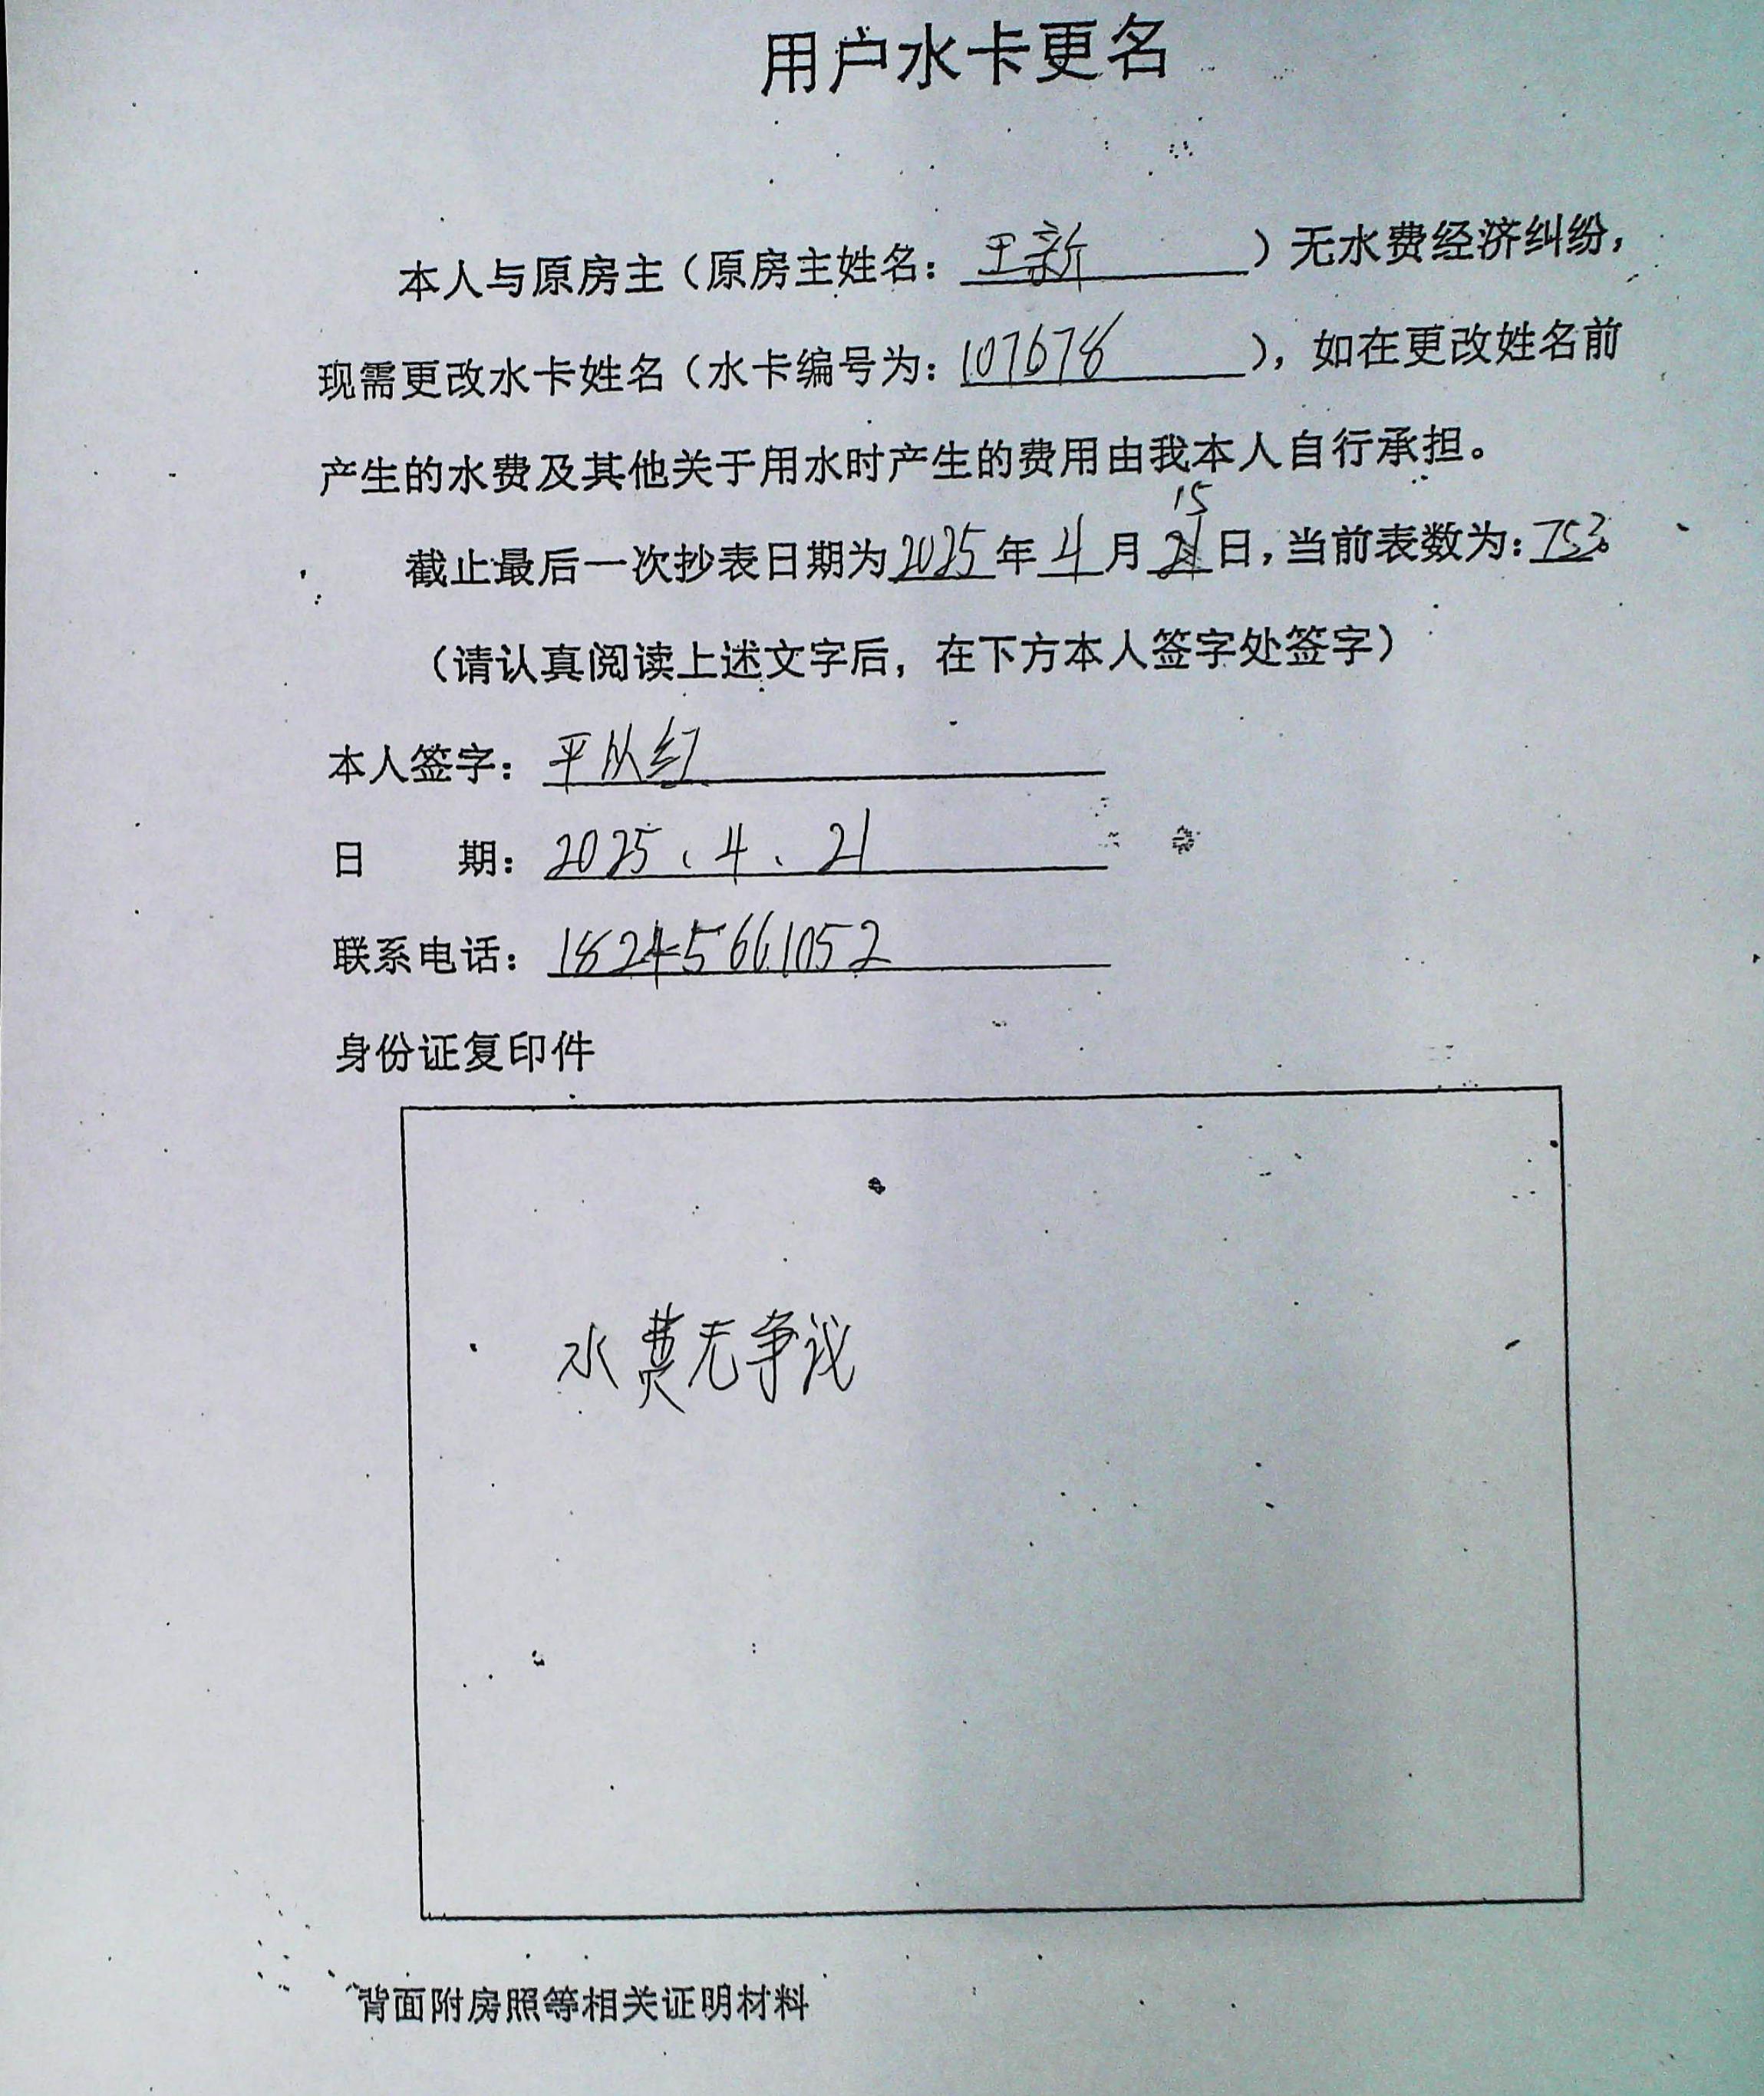 用户水卡更名
本人与原房主（原房主姓名：王新）无水费经济纠纷，
现需更改水卡姓名（水卡编号为：107678），如在更改姓名前
产生的水费及其他关于用水时产生的费用由我本人自行承担。
15
截止最后一次抄表日期为2025年4月21日，当前表数为：753。
（请认真阅读上述文字后，在下方本人签字处签字）
本人签字：平从红
日　　期：2025、4、21
联系电话：18245661052
身份证复印件
水费无争议
背面附房照等相关证明材料